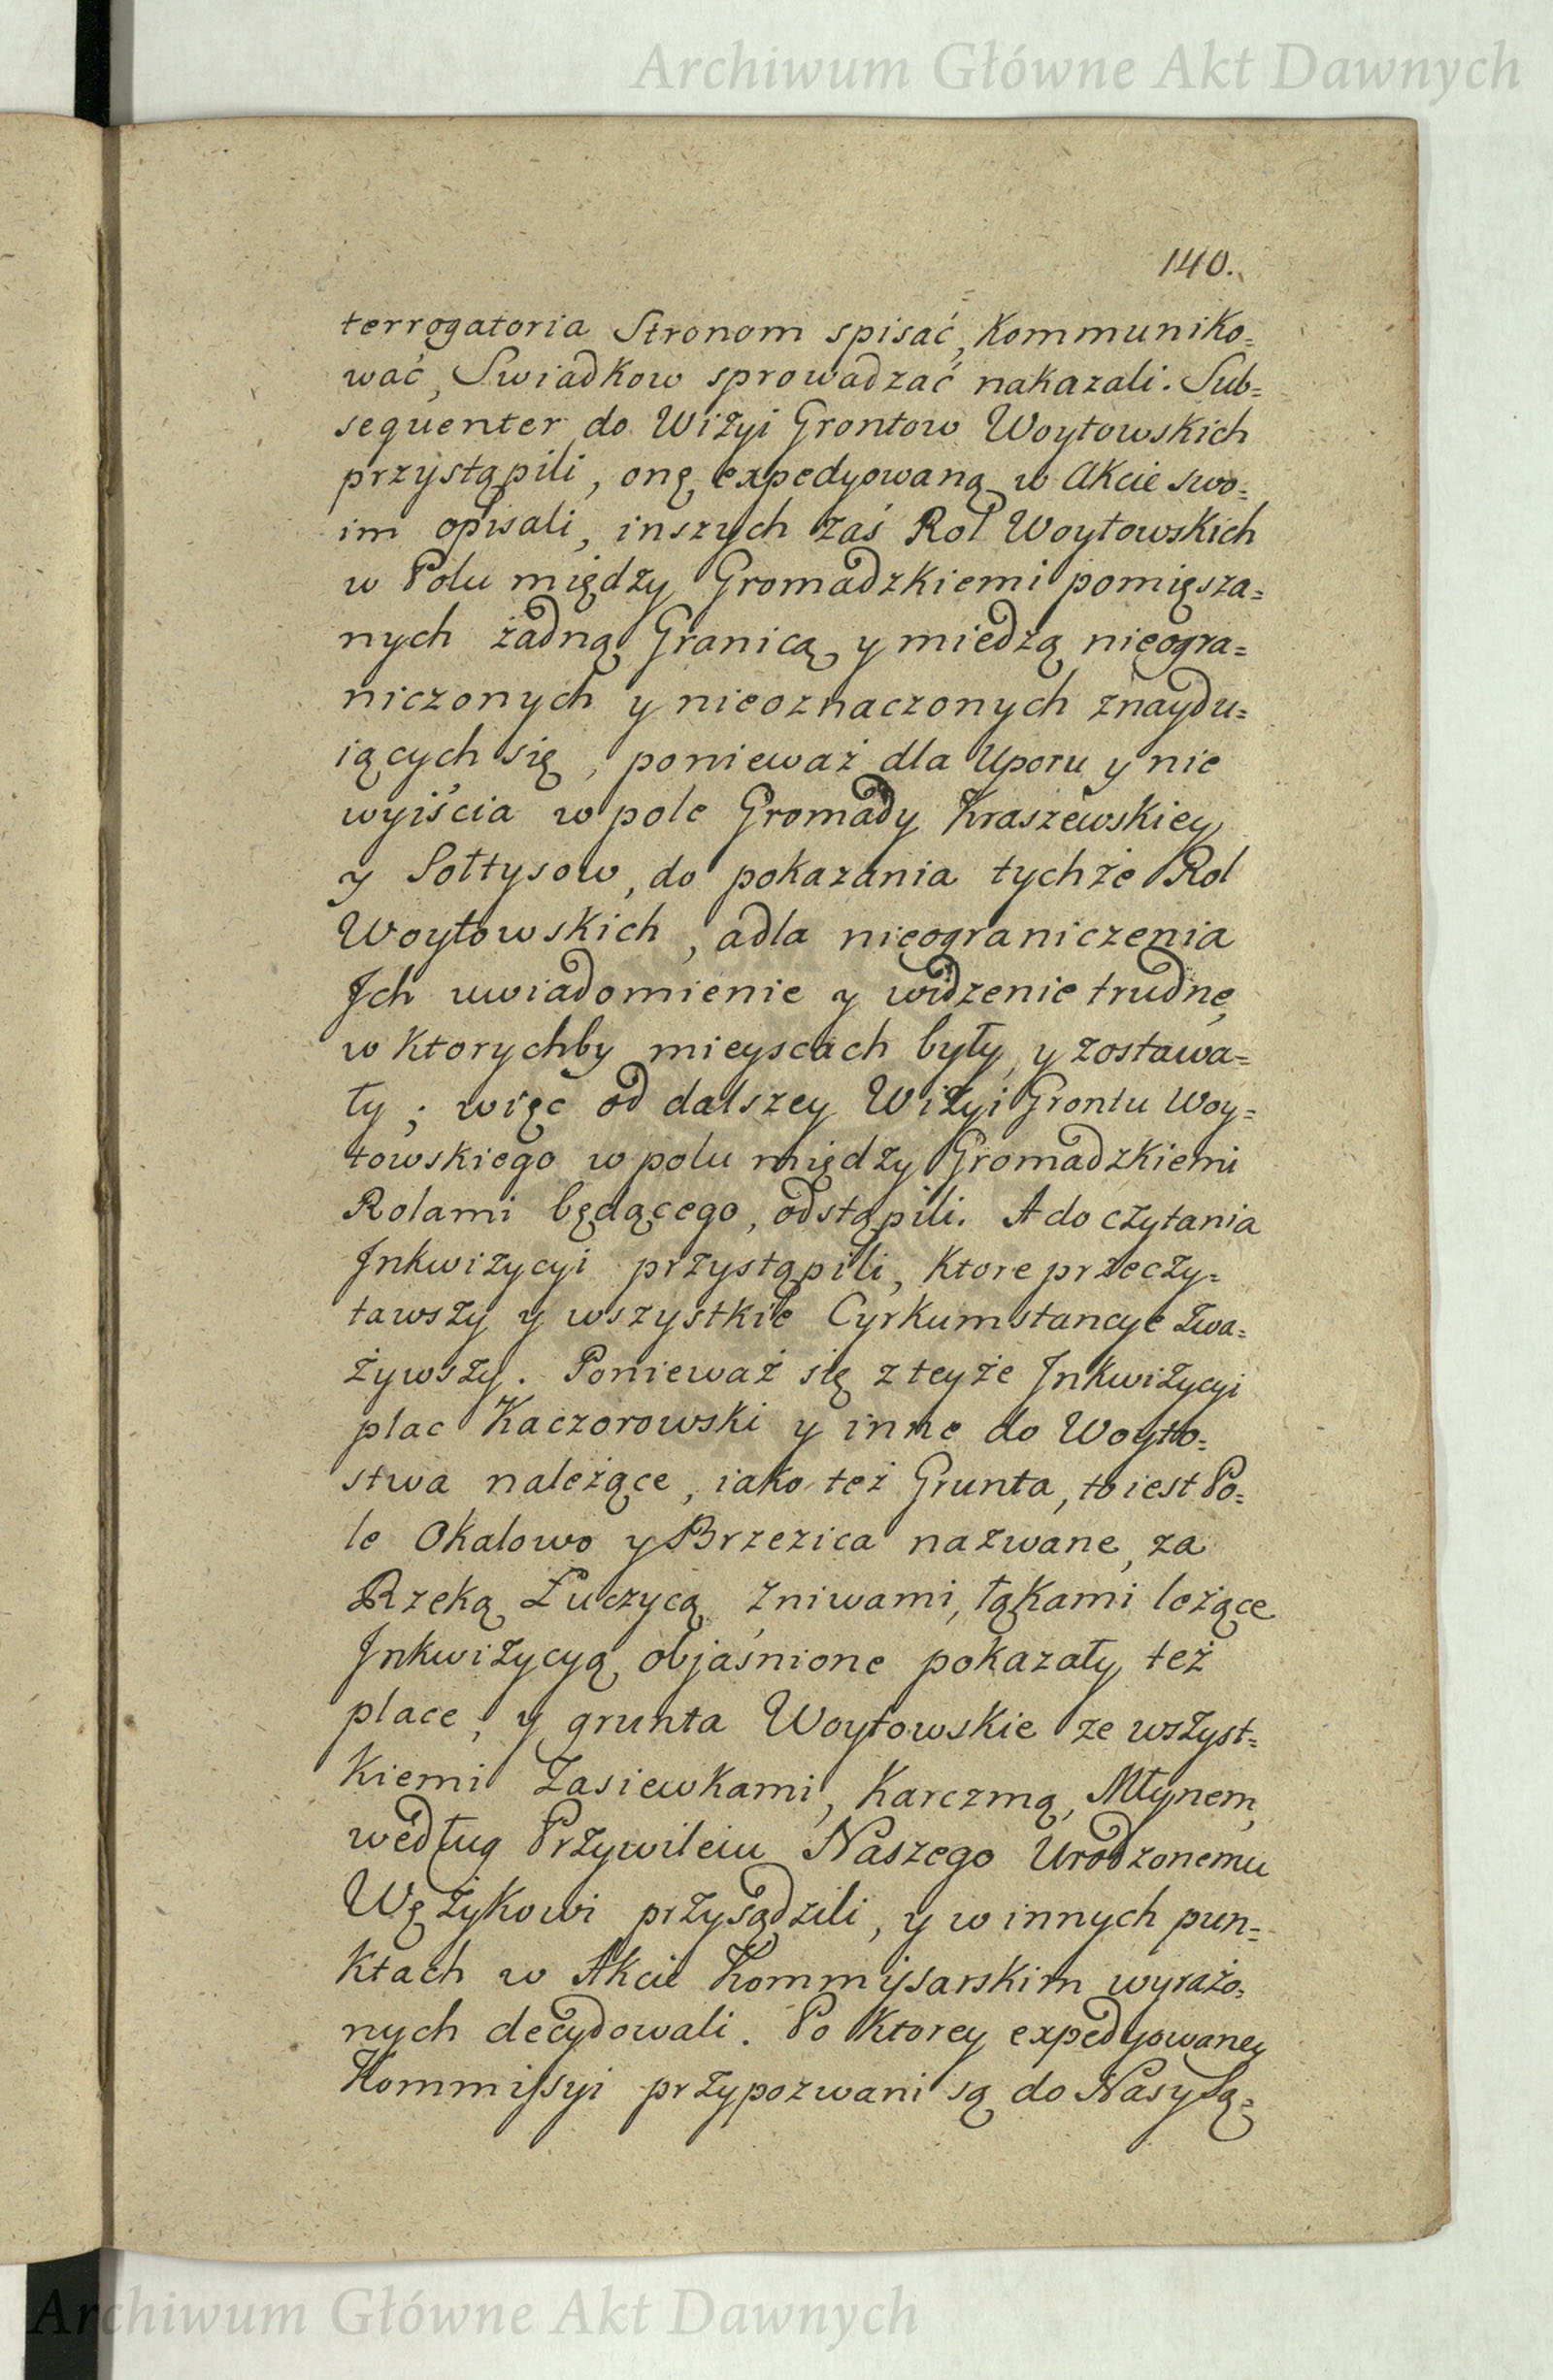 Archiwum Główne Akt Dawnych
140.
terrogatoria Stronom spisać, Kommuniko=
wać, Swiadkow sprowadzać nakazali. Sub=
sequenter do Wizyi Grontow Woytowskich
przystąpili, onę expedyowaną w Akcie swo=
im opisali, inszych zaś Rol Woytowskich
w Polu między Gromadzkiemi pomięsza=
nych żadną Granicą y miedzą nieogra=
niczonych y nieoznaczonych znaydu=
iących się, ponieważ dla Uporu y nie
wyiścia w pole Gromady Kraszewskiey
y Sołtysow, do pokazania tychże Rol
Woytowskich, adla nieograniczenia
Jch uwiadomienie y widzenie trudne,
w ktorychby mieyscach były, y zostawa=
ły; więc od dalszey Wizyi Grontu Woy=
towskiego w polu między Gromadzkiemi
Rolami będącego, odstąpili. A do czytania
Jnkwizycyi przystąpili, ktore przeczy=
tawszy y wszystkie Cyrkumstancye zwa=
żywszy. Ponieważ się z teyże Jnkwizycyi
plac Kaczorowski y inne do Woyto=
stwa należące, iako też Grunta, to iest Po=
le Okalowo y Brzezica nazwane, za
Rzeką Łuczycą, żniwami, łąkami leżące
Jnkwizycyą objaśnione pokazały, też
place, y grunta Woytowskie ze wszyst=
kiemi Zasiewkami, Karczmą, Młynem,
według Przywileiu Naszego Urodzonemu
Wężykowi przysądzili, y w innych pun=
ktach w Akcie Kommisarskim wyrażo=
nych decydowali. Po ktorey expedyowaney
Kommissyi przypozwani są do Nas y Są=
Archiwum Główne Akt Dawnych